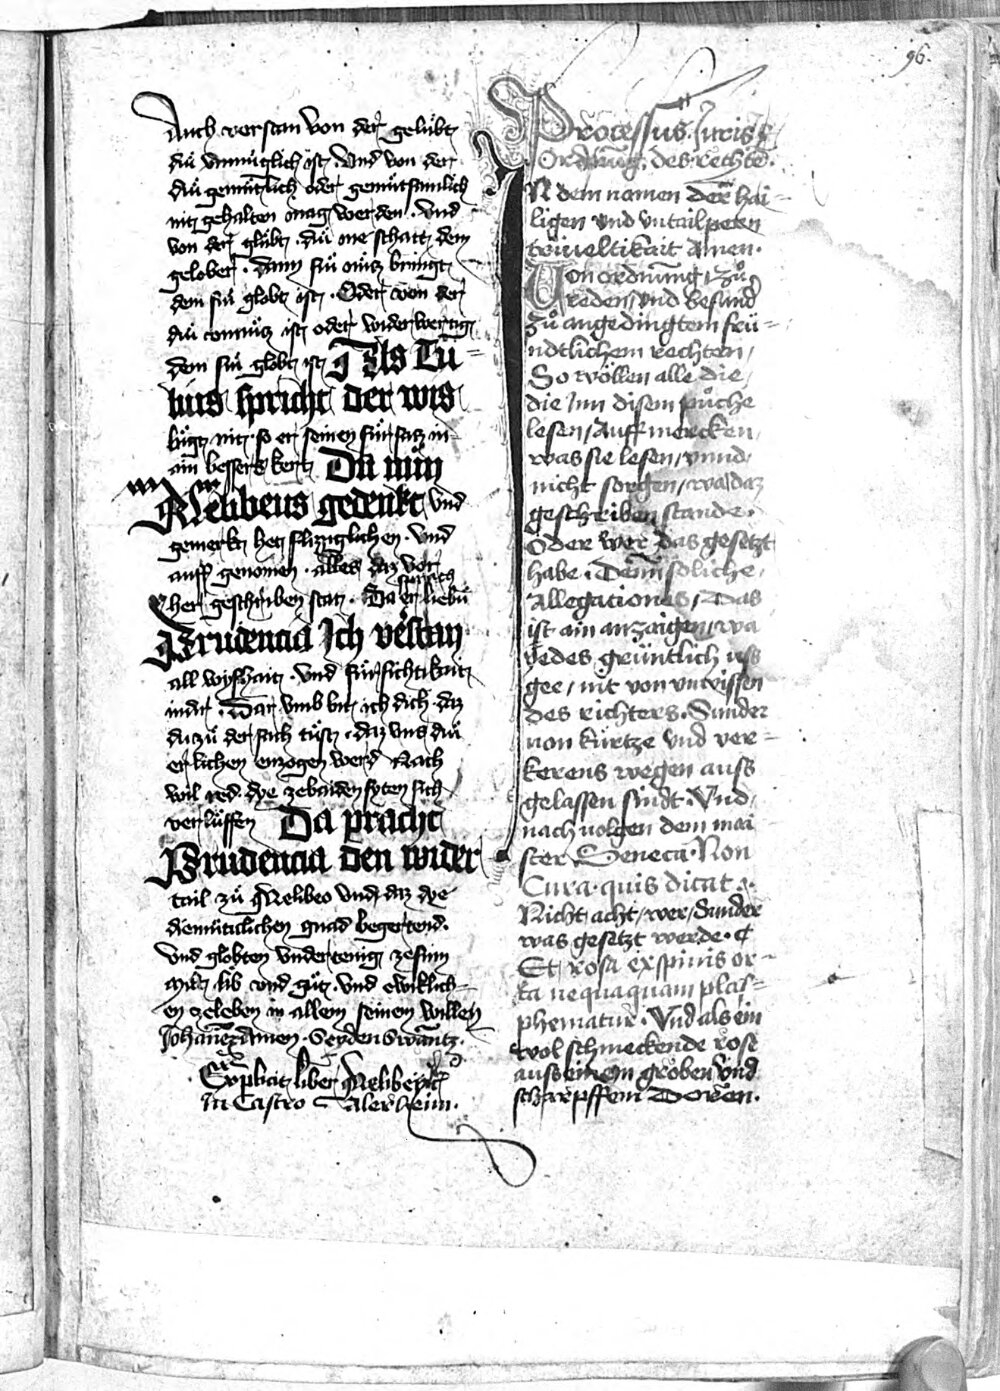 96.
Auch verstan von der gelübt
diu vnmüglich ist. Vnd von der
diu gemüttlich oder gemütsamlich
nit gehalten mag werden. Vnd
von der glübt. diu me schatt dem
gelober. dann siu nütz bringt
dem siu globt ist. Oder von der
diu vnnütz ist oder widerwertig
dem siu globt ist Als Tu=
lius spricht der wis
lügt nit so er seinen fürsatz in
ain bessers kert Da nun
Melibeus gedenkt vnd
gemerkt het flizziglichen. Vnd
auff genomen. alles daz vor
her geschriben stat. Da sprach er liebü
Prudencia Ich verstan
all wyshait. vnd fürsichtikait
in dir. Dar vmb bit ich dich daz
du zu der sach tügst. daz vns diu
erlichen enzogen werd Nach
wil red dye zebaiden syten sich
verlüffen Da pracht
Prudencia den wider
tail zü Melibeo vnd daz dye
diemüticlichen gnad begertend.
Vnd globten vndertenig zesinn
mitt lib vnd güt. vnd ewiklich=
en zeleben in allem seinem willen
Johannes Amen. Seydenswantz.
Explicit liber Melibey etc
In Castro Alerheim.
Processus Juris
Ordnung des rechten.
IN dem namen der hai=
ligen vnd vntailpeten
triueltikait Amen.
Von ordnung, zů
reden, vnd besund
zů angedingtem frü=
ndtlichem rechten,
So wöllen alle die,
die Inn disem půche
lesen, Auffmercken,
was sie lesen, vnnd,
nicht sorgen, wa daz
geschriben stande.
Oder wer das gesetzt
habe. Dann soliche,
Allegaciones, Das
ist ain anzaigen, wa
yedes grüntlich uss
gee, nit von vnwissen
des richters. Sunder
von kürtze vnd ver=
kerens wegen auss
gelassen sindt. Vnd,
nach uolgen dem mai
ster Seneca. Non
Cura quis dicat.
Nicht acht, wer, Sunder
was gesetzt werde. ¶
Et rosa exspinis or=
ta nequaquam plas=
phematur. Vnd als ein
wol schmeckende rose
auss einem groben vnd
scharpffem Doren.